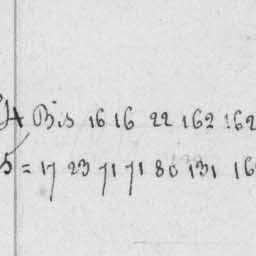 A Bis 16 16 22 162 162
5 = 17 23 71 71 80 131 16